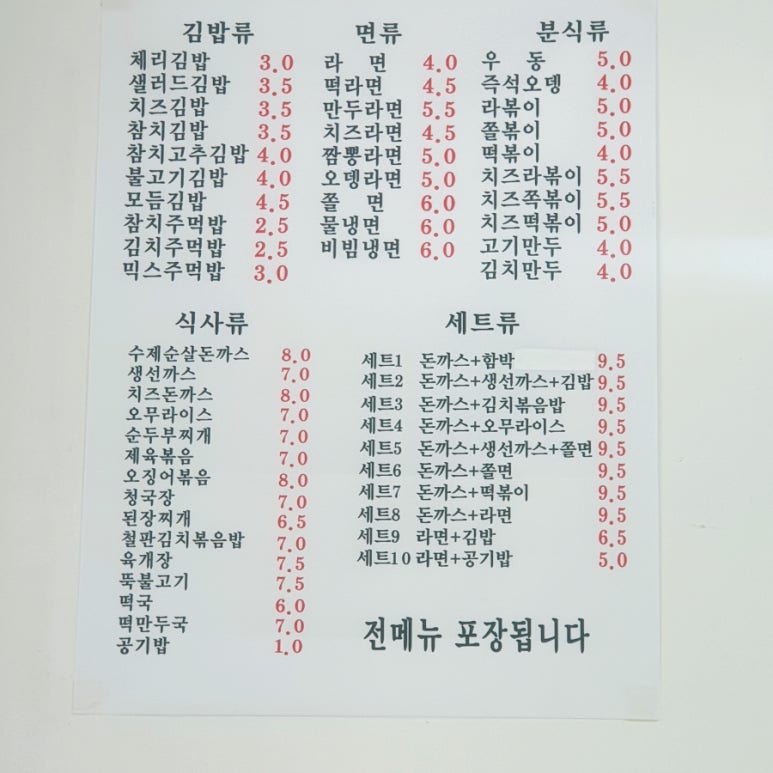 김밥류
체리김밥 3.0
샐러드김밥 3.5
치즈김밥 3.5
참치김밥 3.5
참치고추김밥 4.0
불고기김밥 4.0
모듬김밥 4.5
참치주먹밥 2.5
김치주먹밥 2.5
믹스주먹밥 3.0
면류
라 면 4.0
떡라면 4.5
만두라면 5.5
치즈라면 4.5
짬뽕라면 5.0
오뎅라면 5.0
쫄 면 6.0
물냉면 6.0
비빔냉면 6.0
분식류
우 동 5.0
즉석오뎅 4.0
라볶이 5.0
쫄볶이 5.0
떡볶이 4.0
치즈라볶이 5.5
치즈쪽볶이 5.5
치즈떡볶이 5.0
고기만두 4.0
김치만두 4.0
식사류
수제순살돈까스 8.0
생선까스 7.0
치즈돈까스 8.0
오무라이스 7.0
순두부찌개 7.0
제육볶음 7.0
오징어볶음 8.0
청국장 7.0
된장찌개 6.5
철판김치볶음밥 7.0
육개장 7.5
뚝불고기 7.5
떡국 6.0
떡만두국 7.0
공기밥 1.0
세트류
세트1 돈까스+함박 9.5
세트2 돈까스+생선까스+김밥 9.5
세트3 돈까스+김치볶음밥 9.5
세트4 돈까스+오무라이스 9.5
세트5 돈까스+생선까스+쫄면 9.5
세트6 돈까스+쫄면 9.5
세트7 돈까스+떡볶이 9.5
세트8 돈까스+라면 9.5
세트9 라면+김밥 6.5
세트10 라면+공기밥 5.0
전메뉴 포장됩니다